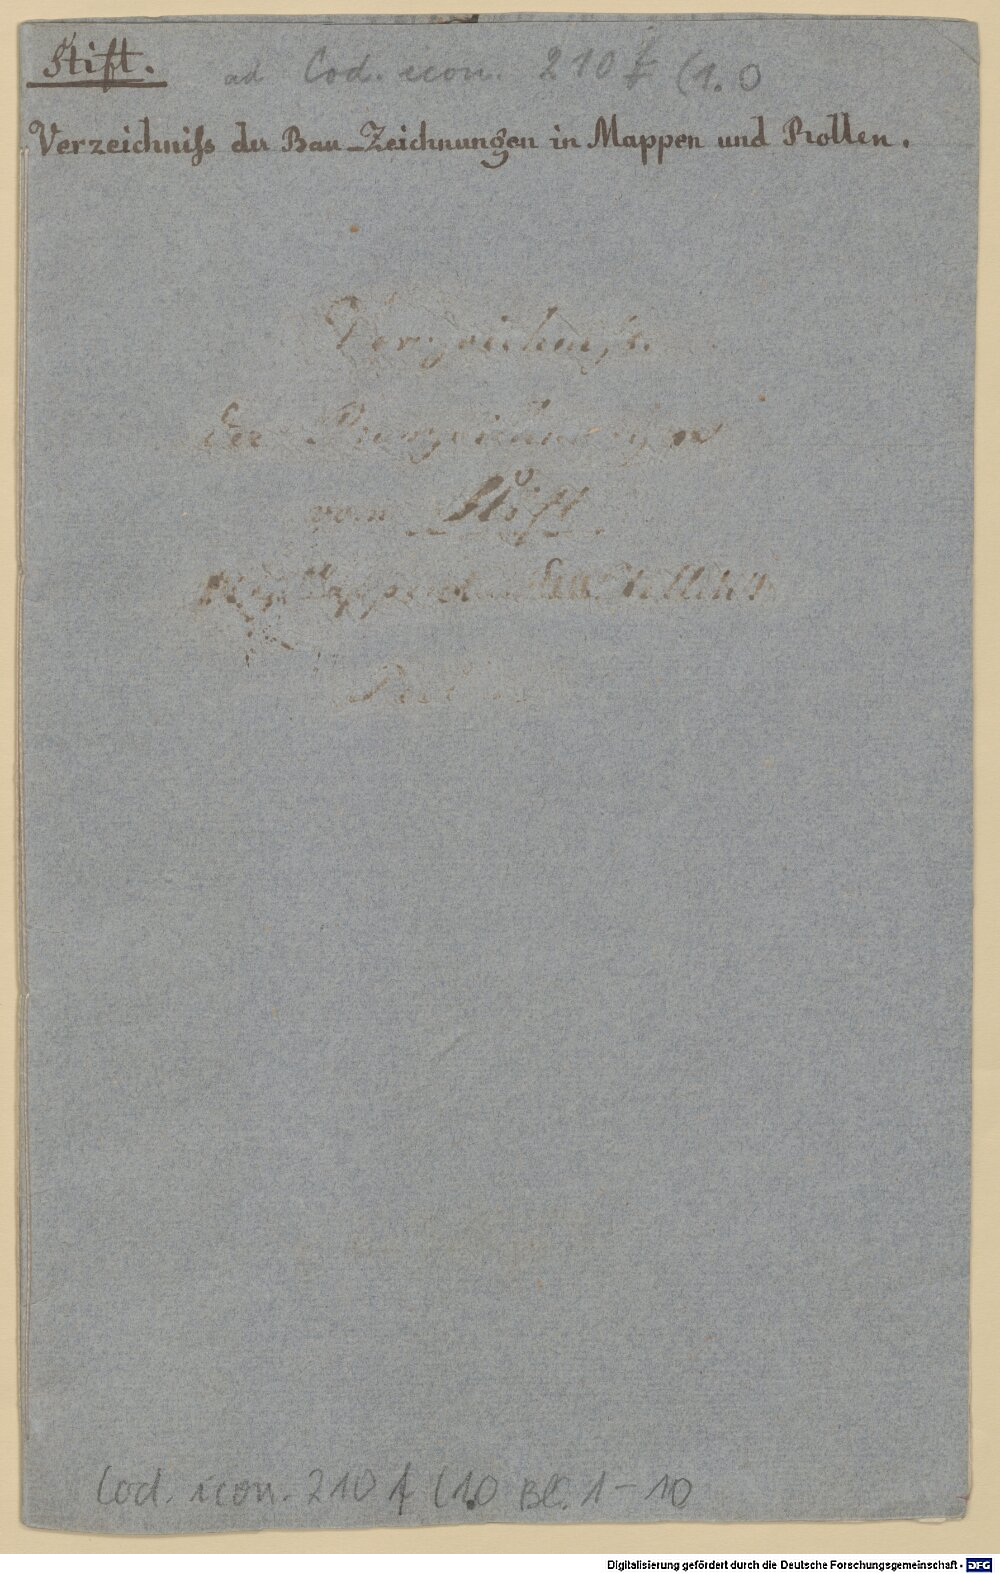 Stift.
ad Cod. icon. 210 f (1.0
Verzeichniſs der Bau-Zeichnungen in Mappen und Rollen.
Verzeichniſs.
der Bauzeichnungen
vom Stift
Cod. icon. 210 f (1.0 Bl. 1-10
Digitalisierung gefördert durch die Deutsche Forschungsgemeinschaft - DFG